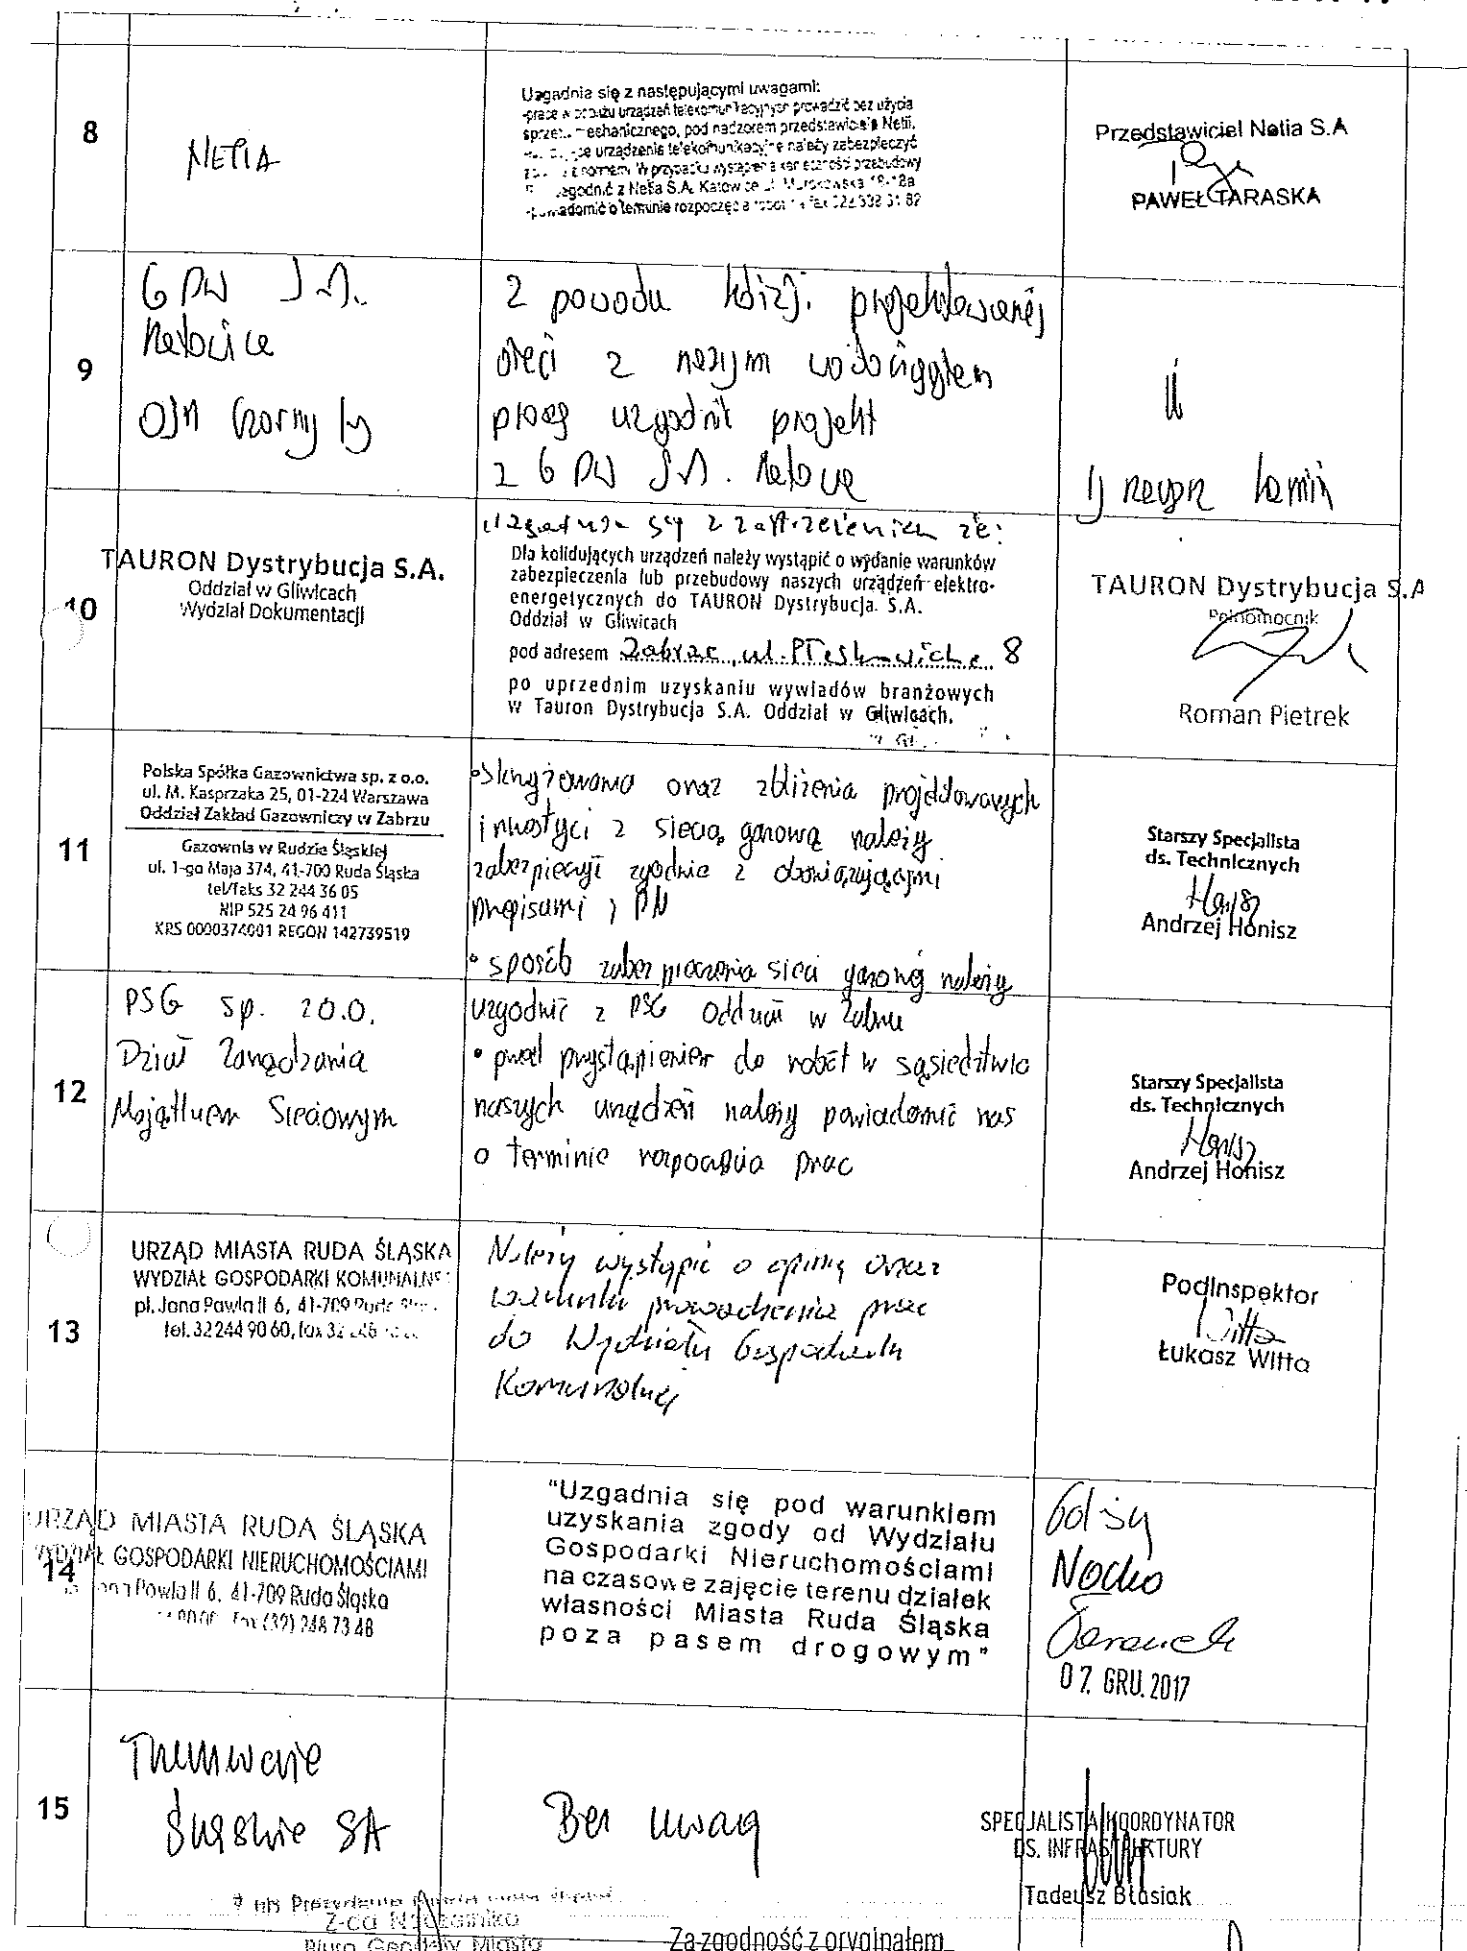 8
NETIA
Uzgadnia się z następującymi uwagami:
-prace w pobliżu urządzeń telekomunikacyjnych prowadzić bez użycia
mechanicznego, pod nadzorem przedstawiciela Netii,
urządzenia telekomunikacyjne należy zabezpieczyć
W przypadku wystąpienia konieczności przebudowy
z Netia S.A. Katowice ul.
o terminie rozpoczęcia robót
Przedstawiciel Netia S.A
PAWEŁ TARASKA
9
GPW S.A.
Katowice
z powodu kolizji projektowanej
sieci z naszym wodociągiem
proszę uzgodnić projekt
z GPW S.A. Katowice
10
TAURON Dystrybucja S.A.
Oddział w Gliwicach
Wydział Dokumentacji
uzgadnia się z zastrzeżeniem że:
Dla kolidujących urządzeń należy wystąpić o wydanie warunków
zabezpieczenia lub przebudowy naszych urządzeń elektro-
energetycznych do TAURON Dystrybucja. S.A.
Oddział w Gliwicach
pod adresem Zabrze, ul. 8
po uprzednim uzyskaniu wywiadów branżowych
w Tauron Dystrybucja S.A. Oddział w Gliwicach.
TAURON Dystrybucja S.A
Pełnomocnik
Roman Pietrek
11
Polska Spółka Gazownictwa sp. z o.o.
ul. M. Kasprzaka 25, 01-224 Warszawa
Oddział Zakład Gazowniczy w Zabrzu
Gazownia w Rudzie Śląskiej
ul. 1-go Maja 374, 41-700 Ruda Śląska
tel/faks 32 244 36 05
NIP 525 24 96 411
KRS 0000374001 REGON 142739519
• skrzyżowania oraz zbliżenia projektowanych
inwestycji z siecią gazową należy
zabezpieczyć zgodnie z obowiązującymi
przepisami i PN
• sposób zabezpieczenia sieci gazowej należy
Starszy Specjalista
ds. Technicznych
Honisz
Andrzej Honisz
12
PSG sp. z o.o.
Dział Zarządzania
Majątkiem Sieciowym
uzgodnić z PSG Oddział w Zabrzu
• przed przystąpieniem do robót w sąsiedztwie
naszych urządzeń należy powiadomić nas
o terminie rozpoczęcia prac
Starszy Specjalista
ds. Technicznych
Honisz
Andrzej Honisz
13
URZĄD MIASTA RUDA ŚLĄSKA
WYDZIAŁ GOSPODARKI KOMUNALNEJ
pl. Jana Pawła II 6, 41-709 Ruda
tel. 32 244 90 60, fax 32
Należy wystąpić o opinię oraz
warunki prowadzenia prac
do Wydziału Gospodarki
Komunalnej
Podinspektor
Witta
Łukasz Witta
14
URZĄD MIASTA RUDA ŚLĄSKA
WYDZIAŁ GOSPODARKI NIERUCHOMOŚCIAMI
Jana Pawła II 6, 41-709 Ruda Śląska
Fax (32) 248 73 48
"Uzgadnia się pod warunkiem
uzyskania zgody od Wydziału
Gospodarki Nieruchomościami
na czasowe zajęcie terenu działek
własności Miasta Ruda Śląska
poza pasem drogowym"
07. GRU. 2017
15
Tramwaje
Śląskie SA
Bez uwag
SPECJALISTA KOORDYNATOR
DS. INFRASTRUKTURY
Tadeusz Błasiak
Z-ca Naczelnika
Biura Geodety Miasta
Za zgodność z oryginałem